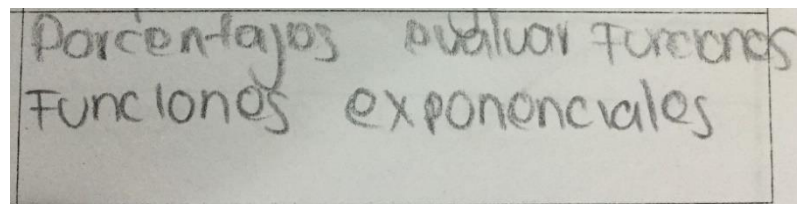 Porcentajes evaluar Funciones
Funciones exponenciales